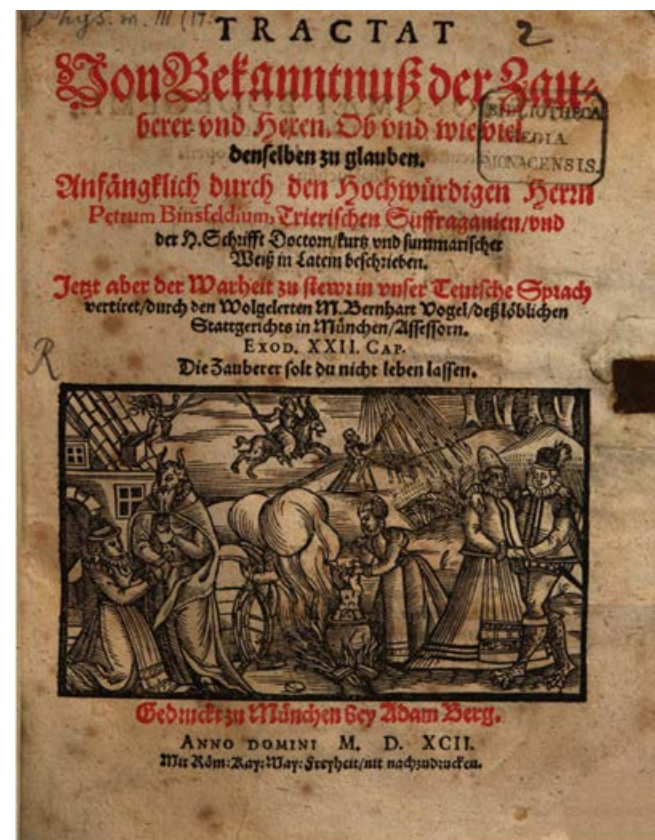 Phys. m. III (17.
2
TRACTAT
Von Bekanntnuß der Zau-
berer vnd Hexen. Ob vnd wie viel
denselben zu glauben.
Anfängklich durch den Hochwürdigen Herrn
Petrum Binsfeldium, Trierischen Suffraganien/vnd
der H. Schrifft Doctorn/kurtz vnd summarischer
Weiß in Latein beschrieben.
Jetzt aber der Warheit zu stewr in vnser Teutsche Sprach
vertiret/durch den Wolgelerten M. Bernhart Vogel/deß löblichen
Stattgerichts in München/Assessorn.
EXOD. XXII. CAP.
Die Zauberer solt du nicht leben lassen.
R
Gedruckt zu München bey Adam Berg.
ANNO DOMINI M. D. XCII.
Mit Röm: Kay: May: Freyheit/nit nachzudrucken.
BIBLIOTHECA
REGIA
MONACENSIS.